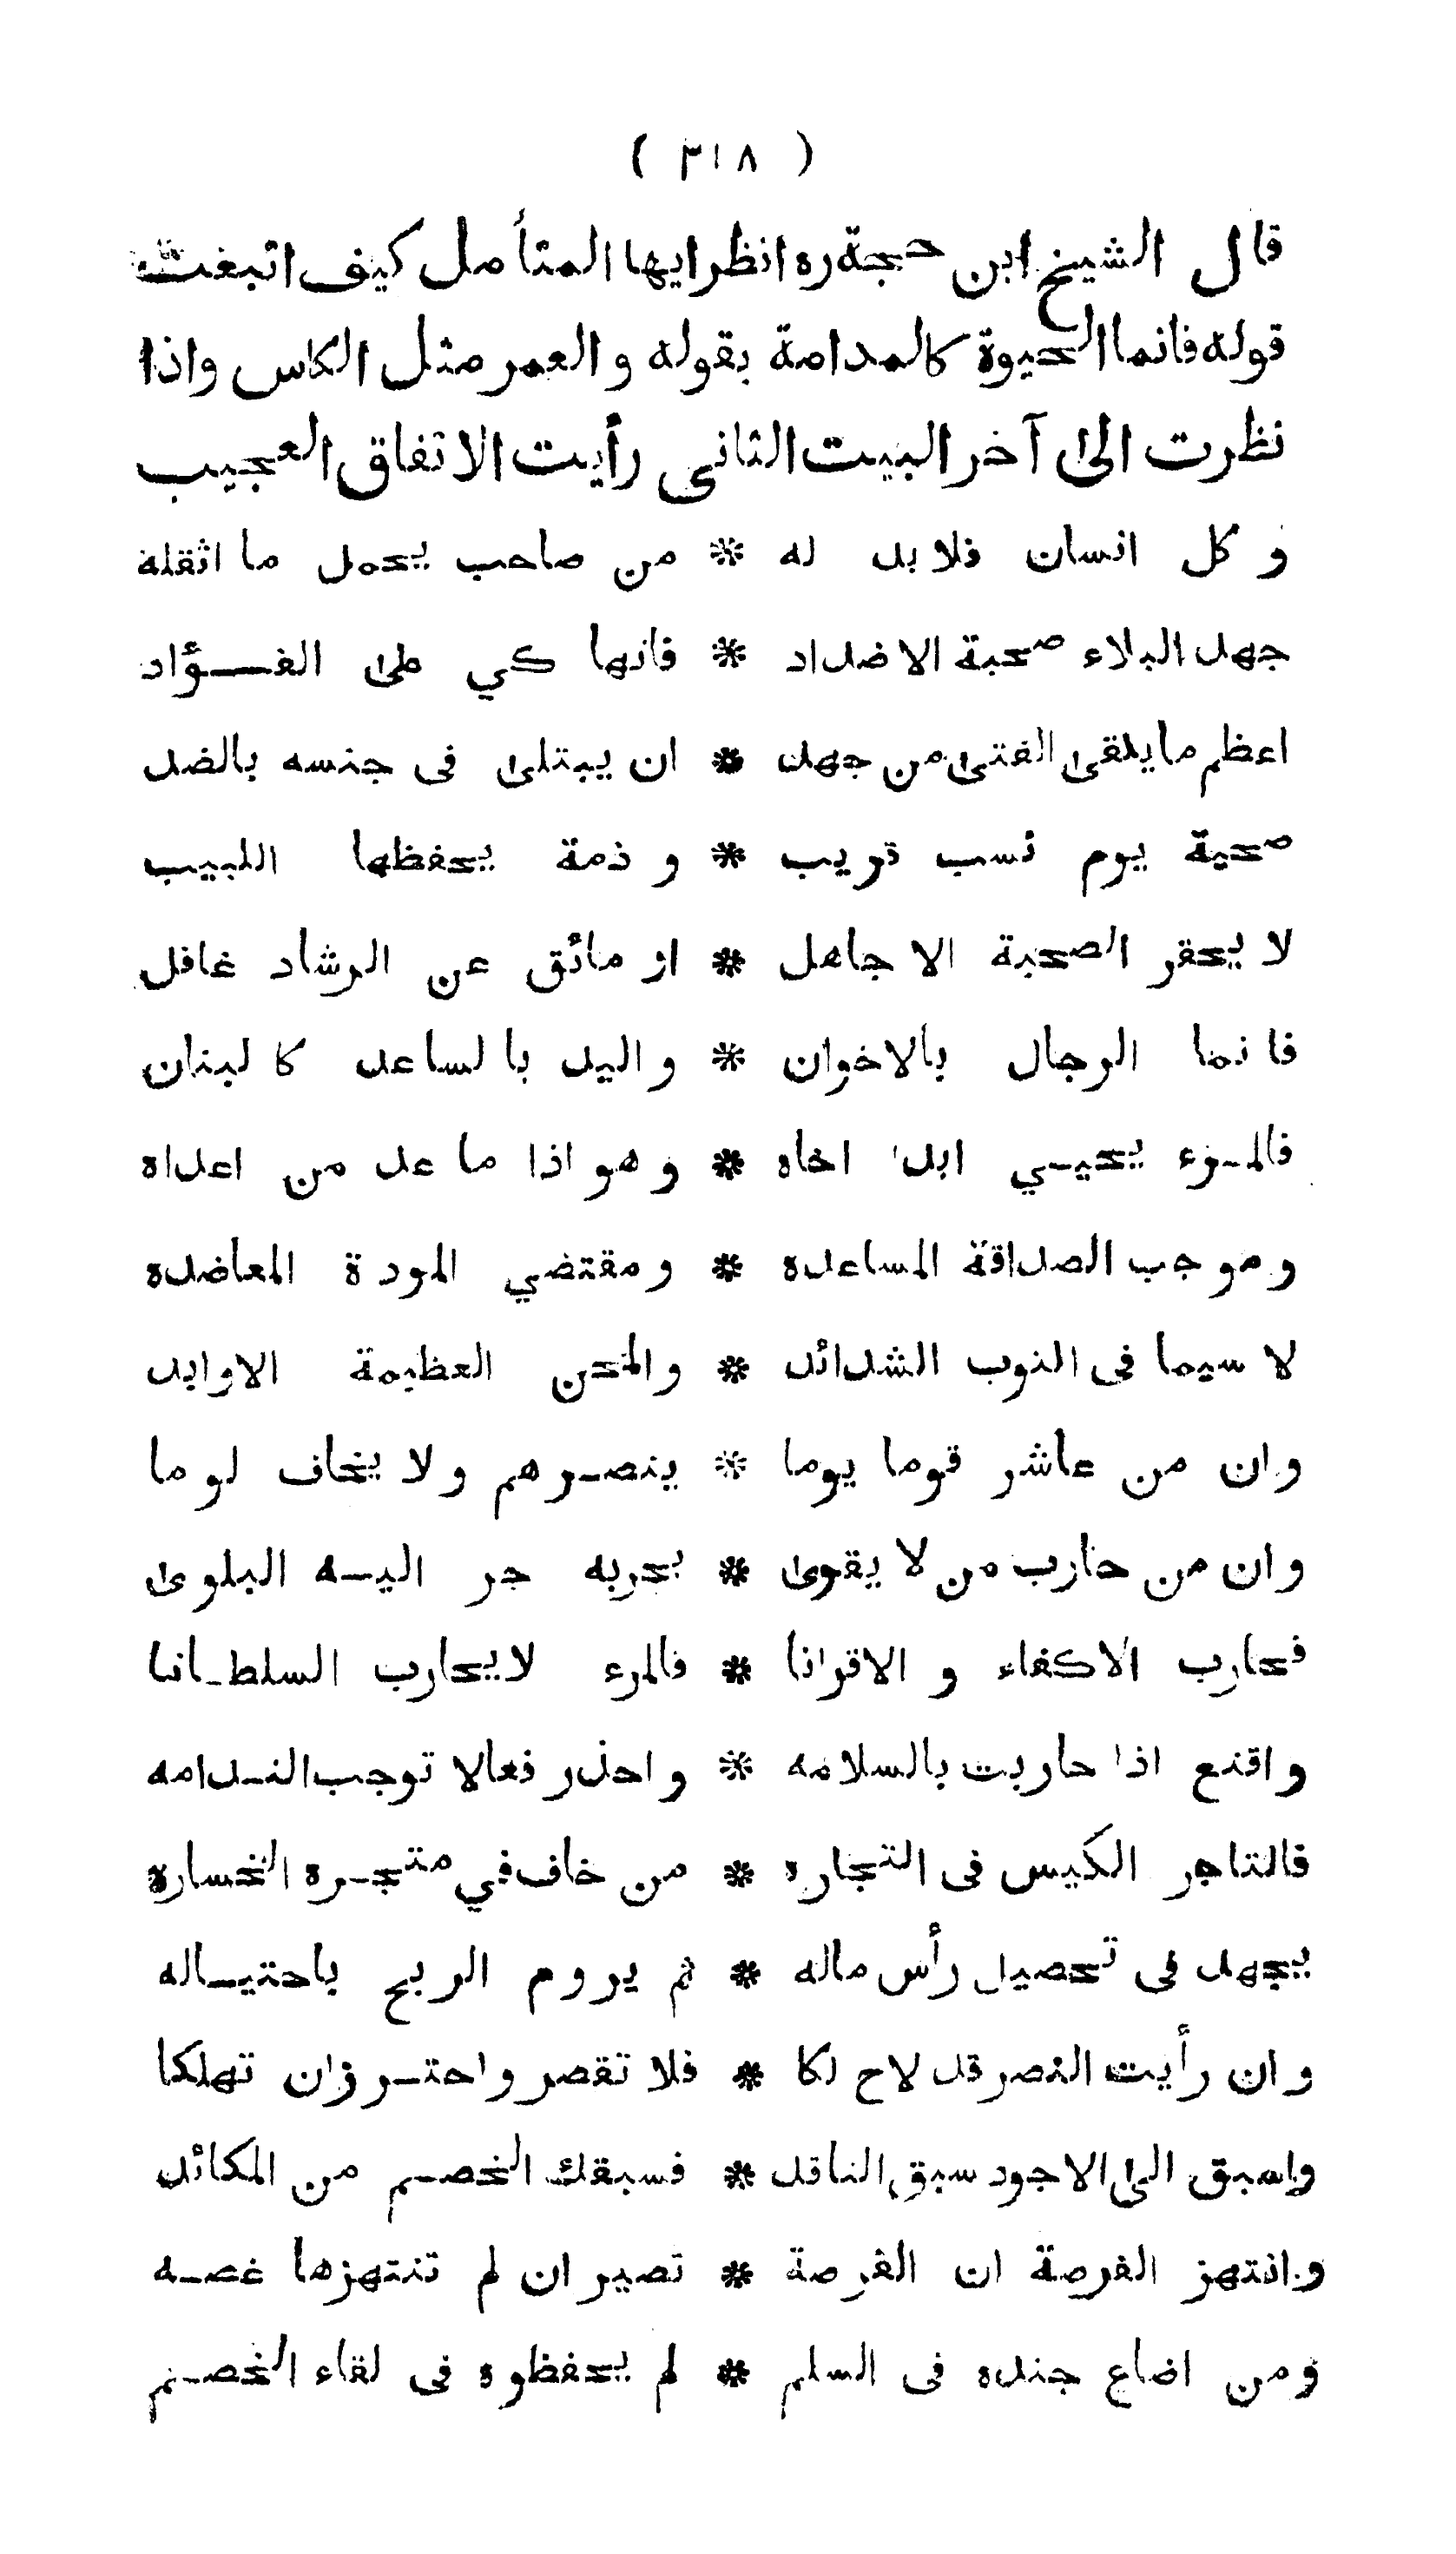 ( ٣١٨ )
قال الشيخ ابن حجة ره انظر ايها المتأمل كيف اتبعت
قوله فانما الحيوة كالمدامة بقوله والعمر مثل الكاس واذا
نظرت الى آخر البيت الثانى رأيت الاتفاق العجيب
وكل انسان فلا بد له * من صاحب يحمل ما اثقله
جهد البلاء صحبة الاضداد * فانها كي على الفـــؤاد
اعظم ما يلقى الفتى من جهد * ان يبتلى فى جنسه بالضد
صحبة يوم نسب قريب * و ذمة يحفظها اللبيب
لا يحقر الصحبة الا جاهل * او مائق عن الرشاد غافل
فانما الرجال بالاخوان * واليد بالساعد كا لبنان
فالمـرء يحيـي ابدا اخاه * وهو اذا ما عد من اعداه
وموجب الصداقة المساعده * ومقتضي المودة المعاضده
لا سيما فى النوب الشدائد * والمحن العظيمة الاوابد
وان من عاشر قوما يوما * ينصـرهم ولا يخاف لوما
وان من حارب من لا يقوى * بحربه جر اليـه البلوى
فحارب الاكفاء و الاقرانا * فالمرء لا يحارب السلطـانا
واقنع اذا حاربت بالسلامه * واحذر فعالا توجب النـدامه
فالتاجر الكيس فى التجاره * من خاف في متجـره الخساره
يجهد فى تحصيل رأس ماله * ثم يروم الربح باحتيـاله
وان رأيت النصر قد لاح لكا * فلا تقصر واحتـرز ان تهلكا
واسبق الى الاجود سبق الناقد * فسبقك الخصـم من المكائد
وانتهز الفرصة ان الفرصة * تصير ان لم تنتهزها غصـه
ومن اضاع جنده فى السلم * لم يحفظوه فى لقاء الخصـم